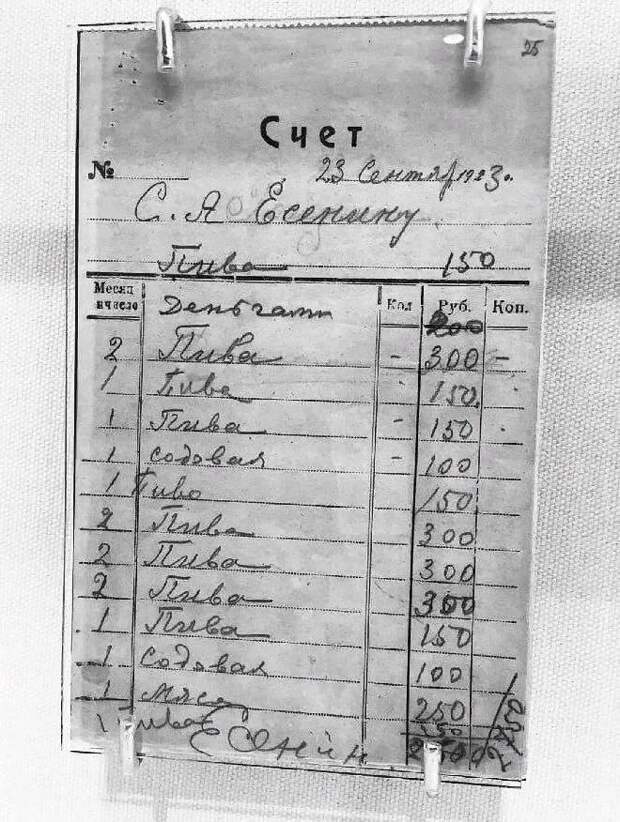 25
Счет
№ 23 Сентяр 1923г.
С. А Есенину
Пива 150
Месяц и число Деньгами Кол Руб. Коп.
200
2 Пива - 300 -
1 Пива - 150
1 Пива - 150
1 содовая - 100
1 Пиво 150
2 Пива 300
2 Пива 300
2 Пива 300
1 Пива 150
1 Содовая 100
1 Мясо 250
1 Пива 150
Есенин